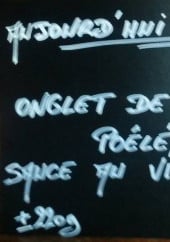 AUJOURD'HUI
ONGLET DE
POÊLÉ
SAUCE AU VI
± 220g